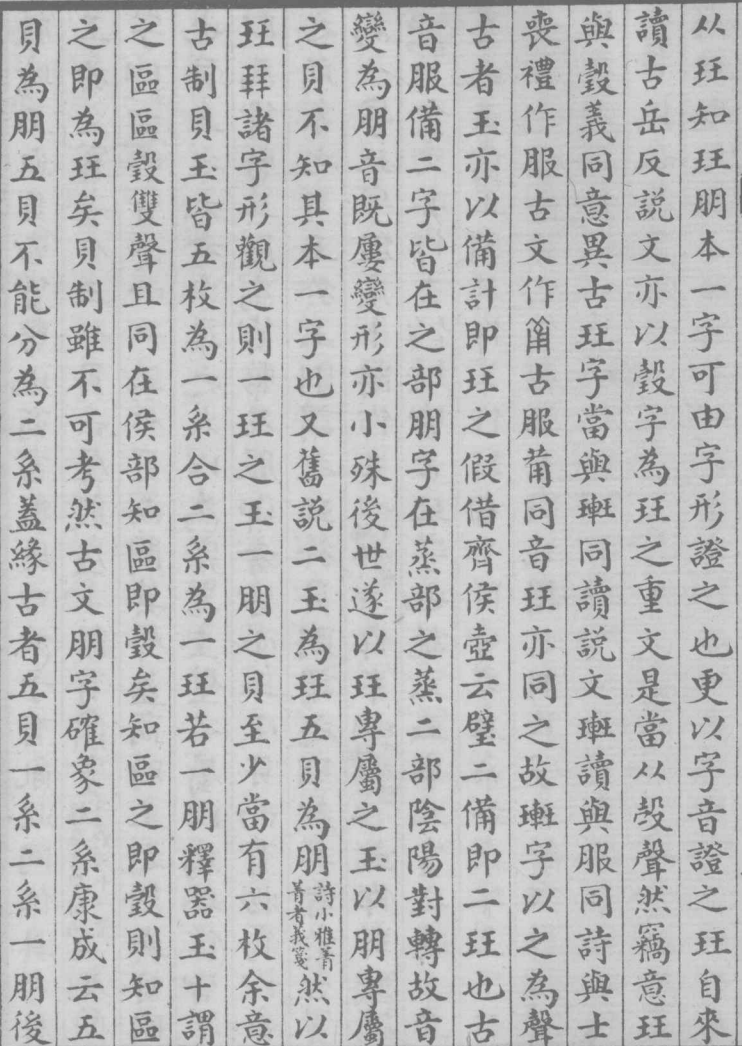 从玨知玨朋本一字可由字形證之也更以字音證之玨自來
讀古岳反說文亦以㲄字為玨之重文是當从㱿聲然竊意玨
與㲄義同意異古玨字當與㻎同讀說文㻎讀與服同詩與士
喪禮作服古文作箙古服葡同音玨亦同之故㻎字以之為聲
古者玉亦以備計即玨之假借齊侯壺云璧二備即二玨也古
音服備二字皆在之部朋字在蒸部之蒸二部陰陽對轉故音
變為朋音既屢變形亦小殊後世遂以玨專屬之玉以朋專屬
之貝不知其本一字也又舊說二玉為玨五貝為朋詩小雅菁菁者莪箋然以
玨𤣽諸字形觀之則一玨之玉一朋之貝至少當有六枚余意
古制貝玉皆五枚為一系合二系為一玨若一朋釋器玉十謂
之區區㲄雙聲且同在侯部知區即㲄矣知區之即㲄則知區
之即為玨矣貝制雖不可考然古文朋字確象二系康成云五
貝為朋五貝不能分為二系蓋緣古者五貝一系二系一朋後